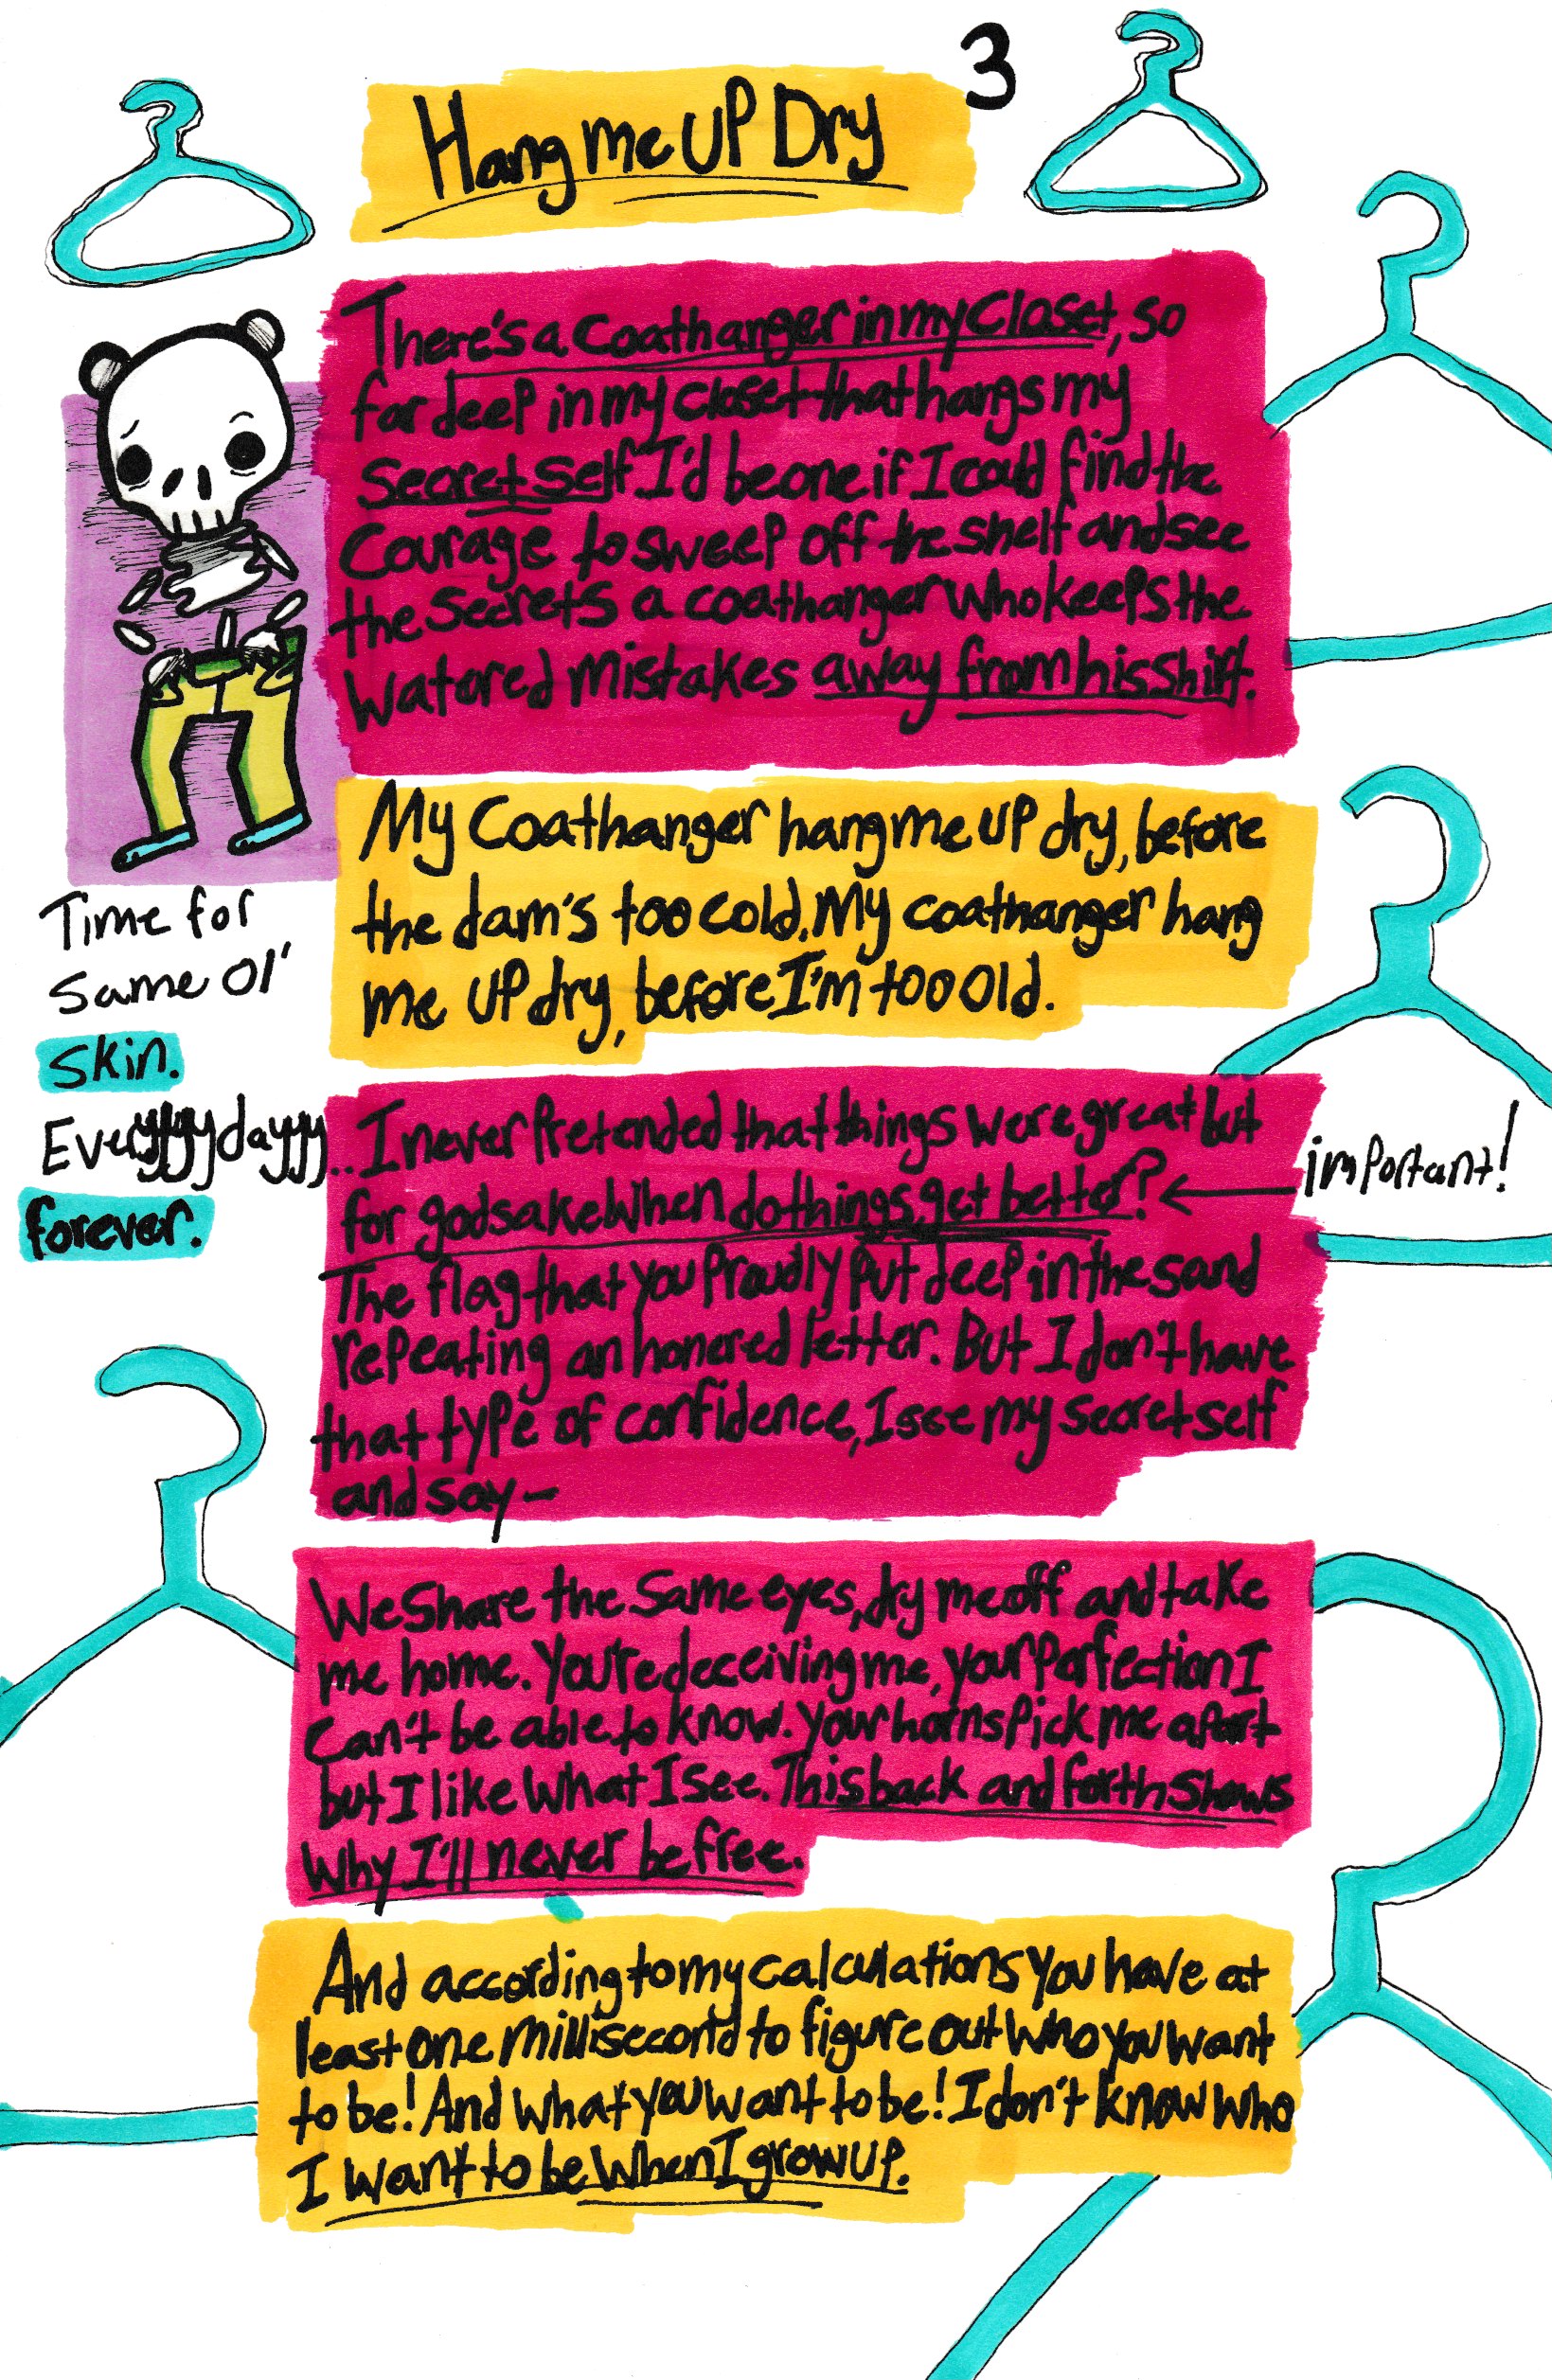 Hang me up Dry
3
There's a coathanger in my closet, so
far deep in my closet that hangs my
secret self. I'd be one if I could find the
courage to sweep off the shelf and see
the secrets a coathanger who keeps the
watored mistakes away from his shirt.
My coathanger hang me up dry, before
the dam's too cold. My coathanger hang
me up dry, before I'm too old.
Time for
same ol'
skin.
Everyyyydayyyy..
forever.
I never pretended that things were great but
for godsake when do things get better?
important!
The flag that you proudly put deep in the sand
repeating an honored letter. But I don't have
that type of confidence, I see my secret self
and say-
We share the same eyes, dry me off and take
me home. You're deceiving me, your perfection I
can't be able to know. Your horns pick me apart
but I like what I see. This back and forth shows
why I'll never be free.
And according to my calculations you have at
least one millisecond to figure out who you want
to be! And what you want to be! I don't know who
I want to be when I grow up.